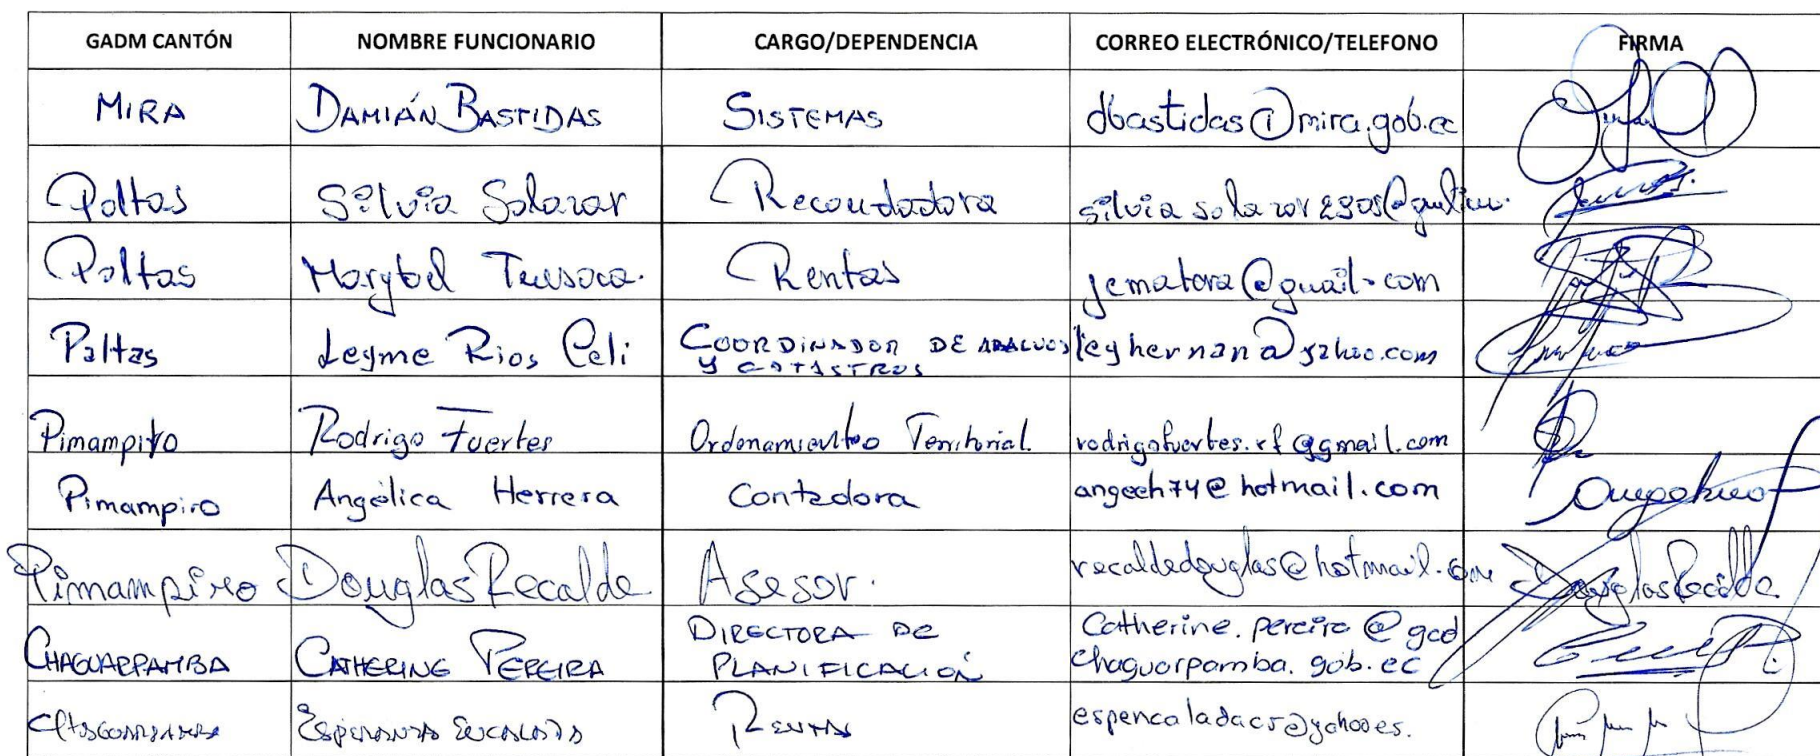 GADM CANTÓN NOMBRE FUNCIONARIO CARGO/DEPENDENCIA CORREO ELECTRÓNICO/TELEFONO FIRMA
MIRA DAMIÁN BASTIDAS SISTEMAS dbastidas@mira.gob.ec
Paltas Silvia Salazar Recaudadora
Paltas Marybel Rentas jematora@gmail.com
Paltas Leyme Rios Celi COORDINADOR DE AVALUOS leyhernan@yahoo.com
Y CATASTROS
Pimampiro Rodrigo Fuertes Ordenamiento Territorial. rodrigofuertes.rf@gmail.com
Pimampiro Angélica Herrera Contadora angeeh74@hotmail.com
Pimampiro Douglas Recalde Asesor. recaldedouglas@hotmail.com Douglas Recalde
CHAGUARPAMBA CATHERINE PEREIRA DIRECTORA DE Catherine.pereira@gad
PLANIFICACIÓN chaguarpamba.gob.ec
CHAGUARPAMBA ESPERANZA ENCALADA RENTAS espencaladacs@yahoo.es.